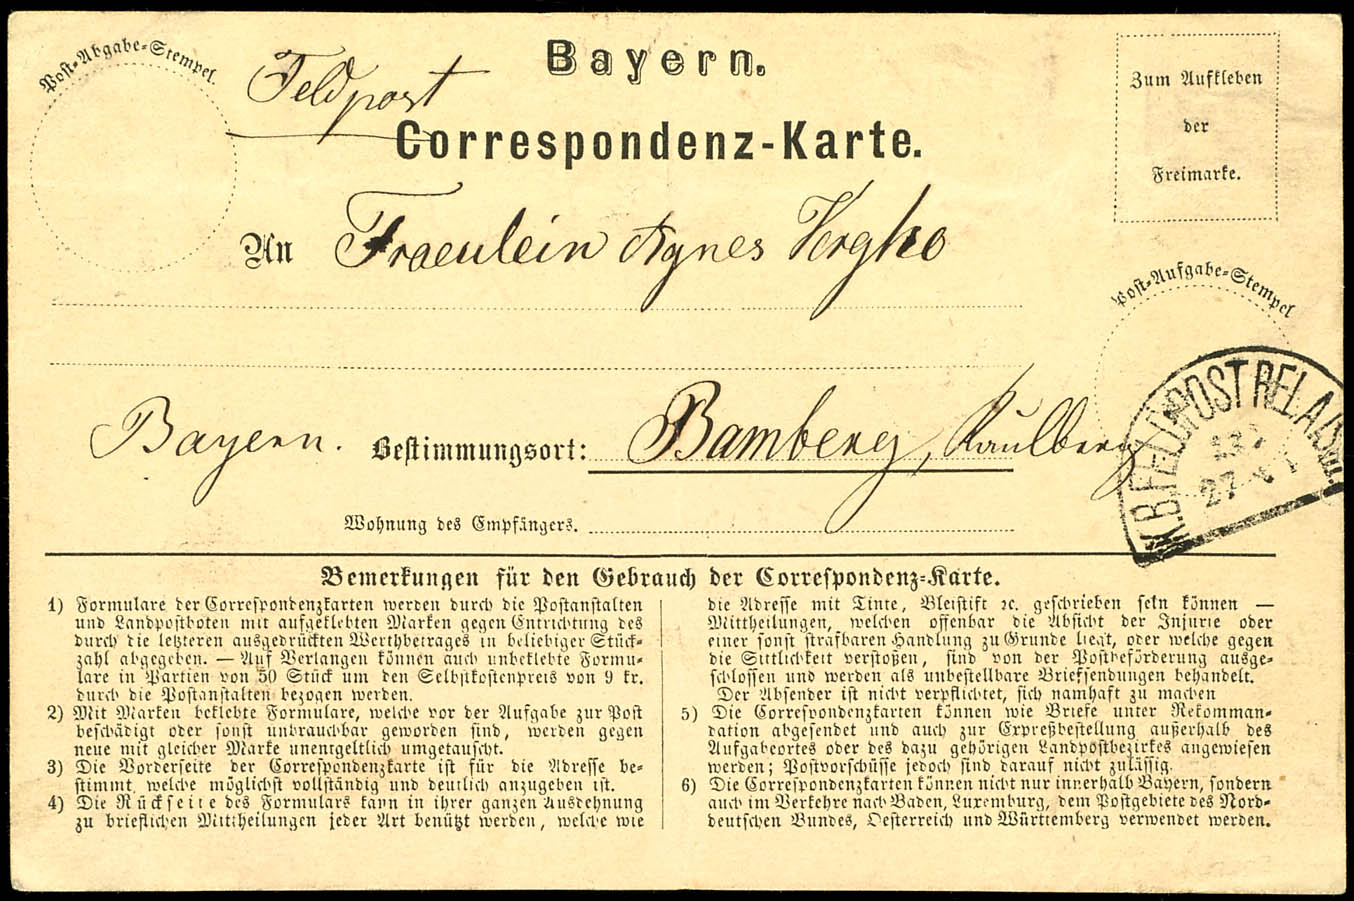 Post-Abgabe-Stempel.
Feldpost
Bayern.
Correspondenz-Karte.
Zum Aufkleben
der
Freimarke.
An Fraeulein Agnes Vergho
Post-Aufgabe-Stempel
Bayern. Bestimmungsort: Bamberg, Kaulberg
K.B. FELDPOST RELAIS
27
Wohnung des Empfängers.
Bemerkungen für den Gebrauch der Correspondenz-Karte.
1) Formulare der Correspondenzkarten werden durch die Postanstalten
und Landpostboten mit aufgeklebten Marken gegen Entrichtung des
durch die letzteren ausgedrückten Werthbetrages in beliebiger Stück-
zahl abgegeben. — Auf Verlangen können auch unbeklebte Formu-
lare in Partien von 50 Stück um den Selbstkostenpreis von 9 kr.
durch die Postanstalten bezogen werden.
2) Mit Marken beklebte Formulare, welche vor der Aufgabe zur Post
beschädigt oder sonst unbrauchbar geworden sind, werden gegen
neue mit gleicher Marke unentgeltlich umgetauscht.
3) Die Vorderseite der Correspondenzkarte ist für die Adresse be-
stimmt, welche möglichst vollständig und deutlich anzugeben ist.
4) Die Rückseite des Formulars kann in ihrer ganzen Ausdehnung
zu brieflichen Mittheilungen jeder Art benützt werden, welche wie
die Adresse mit Tinte, Bleistift ꝛc. geschrieben sein können —
Mittheilungen, welchen offenbar die Absicht der Injurie oder
einer sonst strafbaren Handlung zu Grunde liegt, oder welche gegen
die Sittlichkeit verstoßen, sind von der Postbeförderung ausge-
schlossen und werden als unbestellbare Briefsendungen behandelt.
Der Absender ist nicht verpflichtet, sich namhaft zu machen
5) Die Correspondenzkarten können wie Briefe unter Rekomman-
dation abgesendet und auch zur Expreßbestellung außerhalb des
Aufgabeortes oder des dazu gehörigen Landpostbezirkes angewiesen
werden; Postvorschüsse jedoch sind darauf nicht zulässig.
6) Die Correspondenzkarten können nicht nur innerhalb Bayern, sondern
auch im Verkehre nach Baden, Luxemburg, dem Postgebiete des Nord-
deutschen Bundes, Oesterreich und Württemberg verwendet werden.